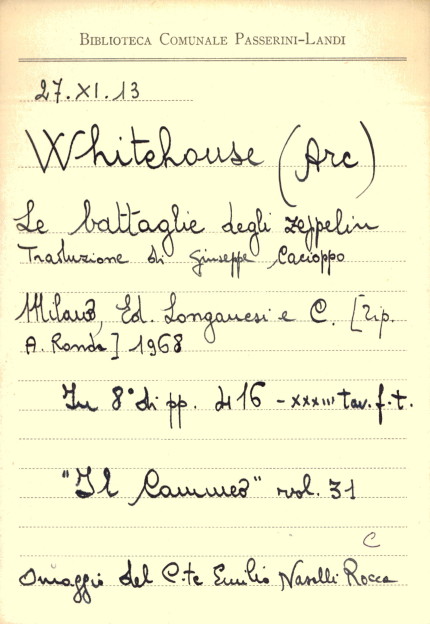 BIBLIOTECA COMUNALE PASSERINI-LANDI
27.XI.13
Whitehouse (Arc)
Le battaglie degli zeppelin
Traduzione di Giuseppe Cacioppo
Milano, Ed. Longanesi e C. [Tip.
A. Ronda] 1968
In 8° di pp. 416 - XXXIII tav. f. t.
"Il Cammeo" vol. 31
C
Omaggio del C.te Emilio Naselli Rocca